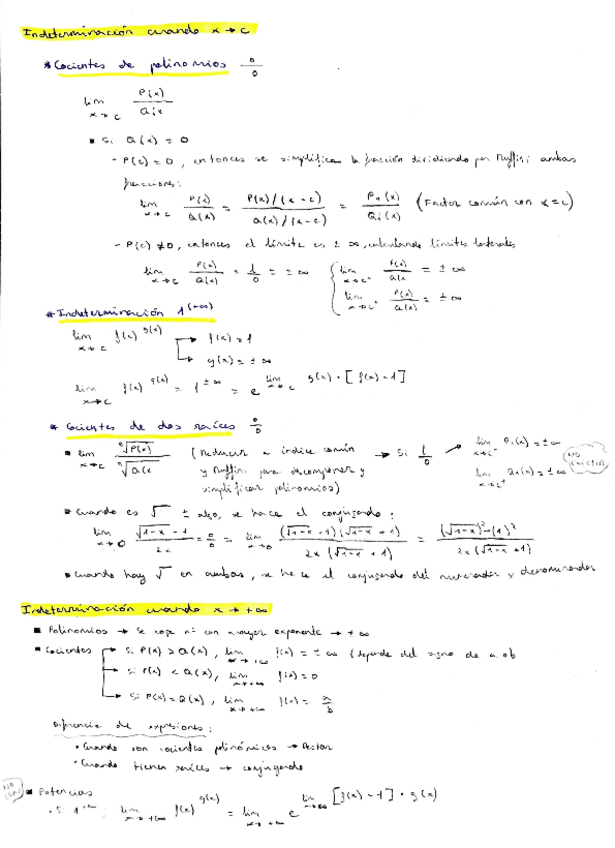 Indeterminación cuando x → c
* Cocientes de polinomios 0/0
lim x→c P(x)/Q(x
▪ Si Q(x) = 0
- P(c) = 0, entonces se simplifica la fracción dividiendo por Ruffini ambas
fracciones:
lim x→c P(x)/Q(x) = P(x)/(x-c) / Q(x)/(x-c) = P₁(x)/Q₁(x) (Factor común con x=c)
- P(c) ≠ 0, entonces el límite es ± ∞, calculando límites laterales
lim x→c P(x)/Q(x) = 1/0 = ± ∞ { lim x→c⁻ P(x)/Q(x = ± ∞
lim x→c⁺ P(x)/Q(x) = ± ∞
* Indeterminación 1^(+∞)
lim x→c f(x)^g(x) → f(x) = 1
→ g(x) = ± ∞
lim x→c f(x)^g(x) = 1^±∞ = e^lim x→c g(x) · [f(x) - 1]
* Cocientes de dos raíces 0/0
▪ lim x→c √P(x) / √Q(x (Reducir a índice común → Si 1/0 lim x→c⁻ = ± ∞
y Ruffini para descomponer y lim x→c⁺ = ± ∞ NO EXISTEN
simplificar polinomios)
▪ Cuando es √ ± algo, se hace el conjugado:
lim x→0 √1-x - 1 / 2x = 0/0 = lim x→0 (√1-x - 1)(√1-x + 1) / 2x (√1-x + 1) = (√1-x)² - (1)² / 2x (√1-x + 1)
▪ Cuando hay √ en ambas, se hace el conjugado del numerador y denominador
Indeterminación cuando x → +∞
▪ Polinomios → Se coge nº con mayor exponente → ± ∞
▪ Cocientes → Si P(x) > Q(x), lim x→+∞ f(x) = ± ∞ (depende del signo de a, b
→ Si P(x) < Q(x), lim x→+∞ f(x) = 0
→ Si P(x) = Q(x), lim x→+∞ f(x) = a/b
Diferencia de expresiones:
• Cuando son cocientes polinómicos → Restar
• Cuando tienen raíces → conjugado
▪ Potencias
• Si 1^±∞, lim x→+∞ f(x)^g(x) = lim x→+∞ e^lim x→∞ [f(x) - 1] · g(x)